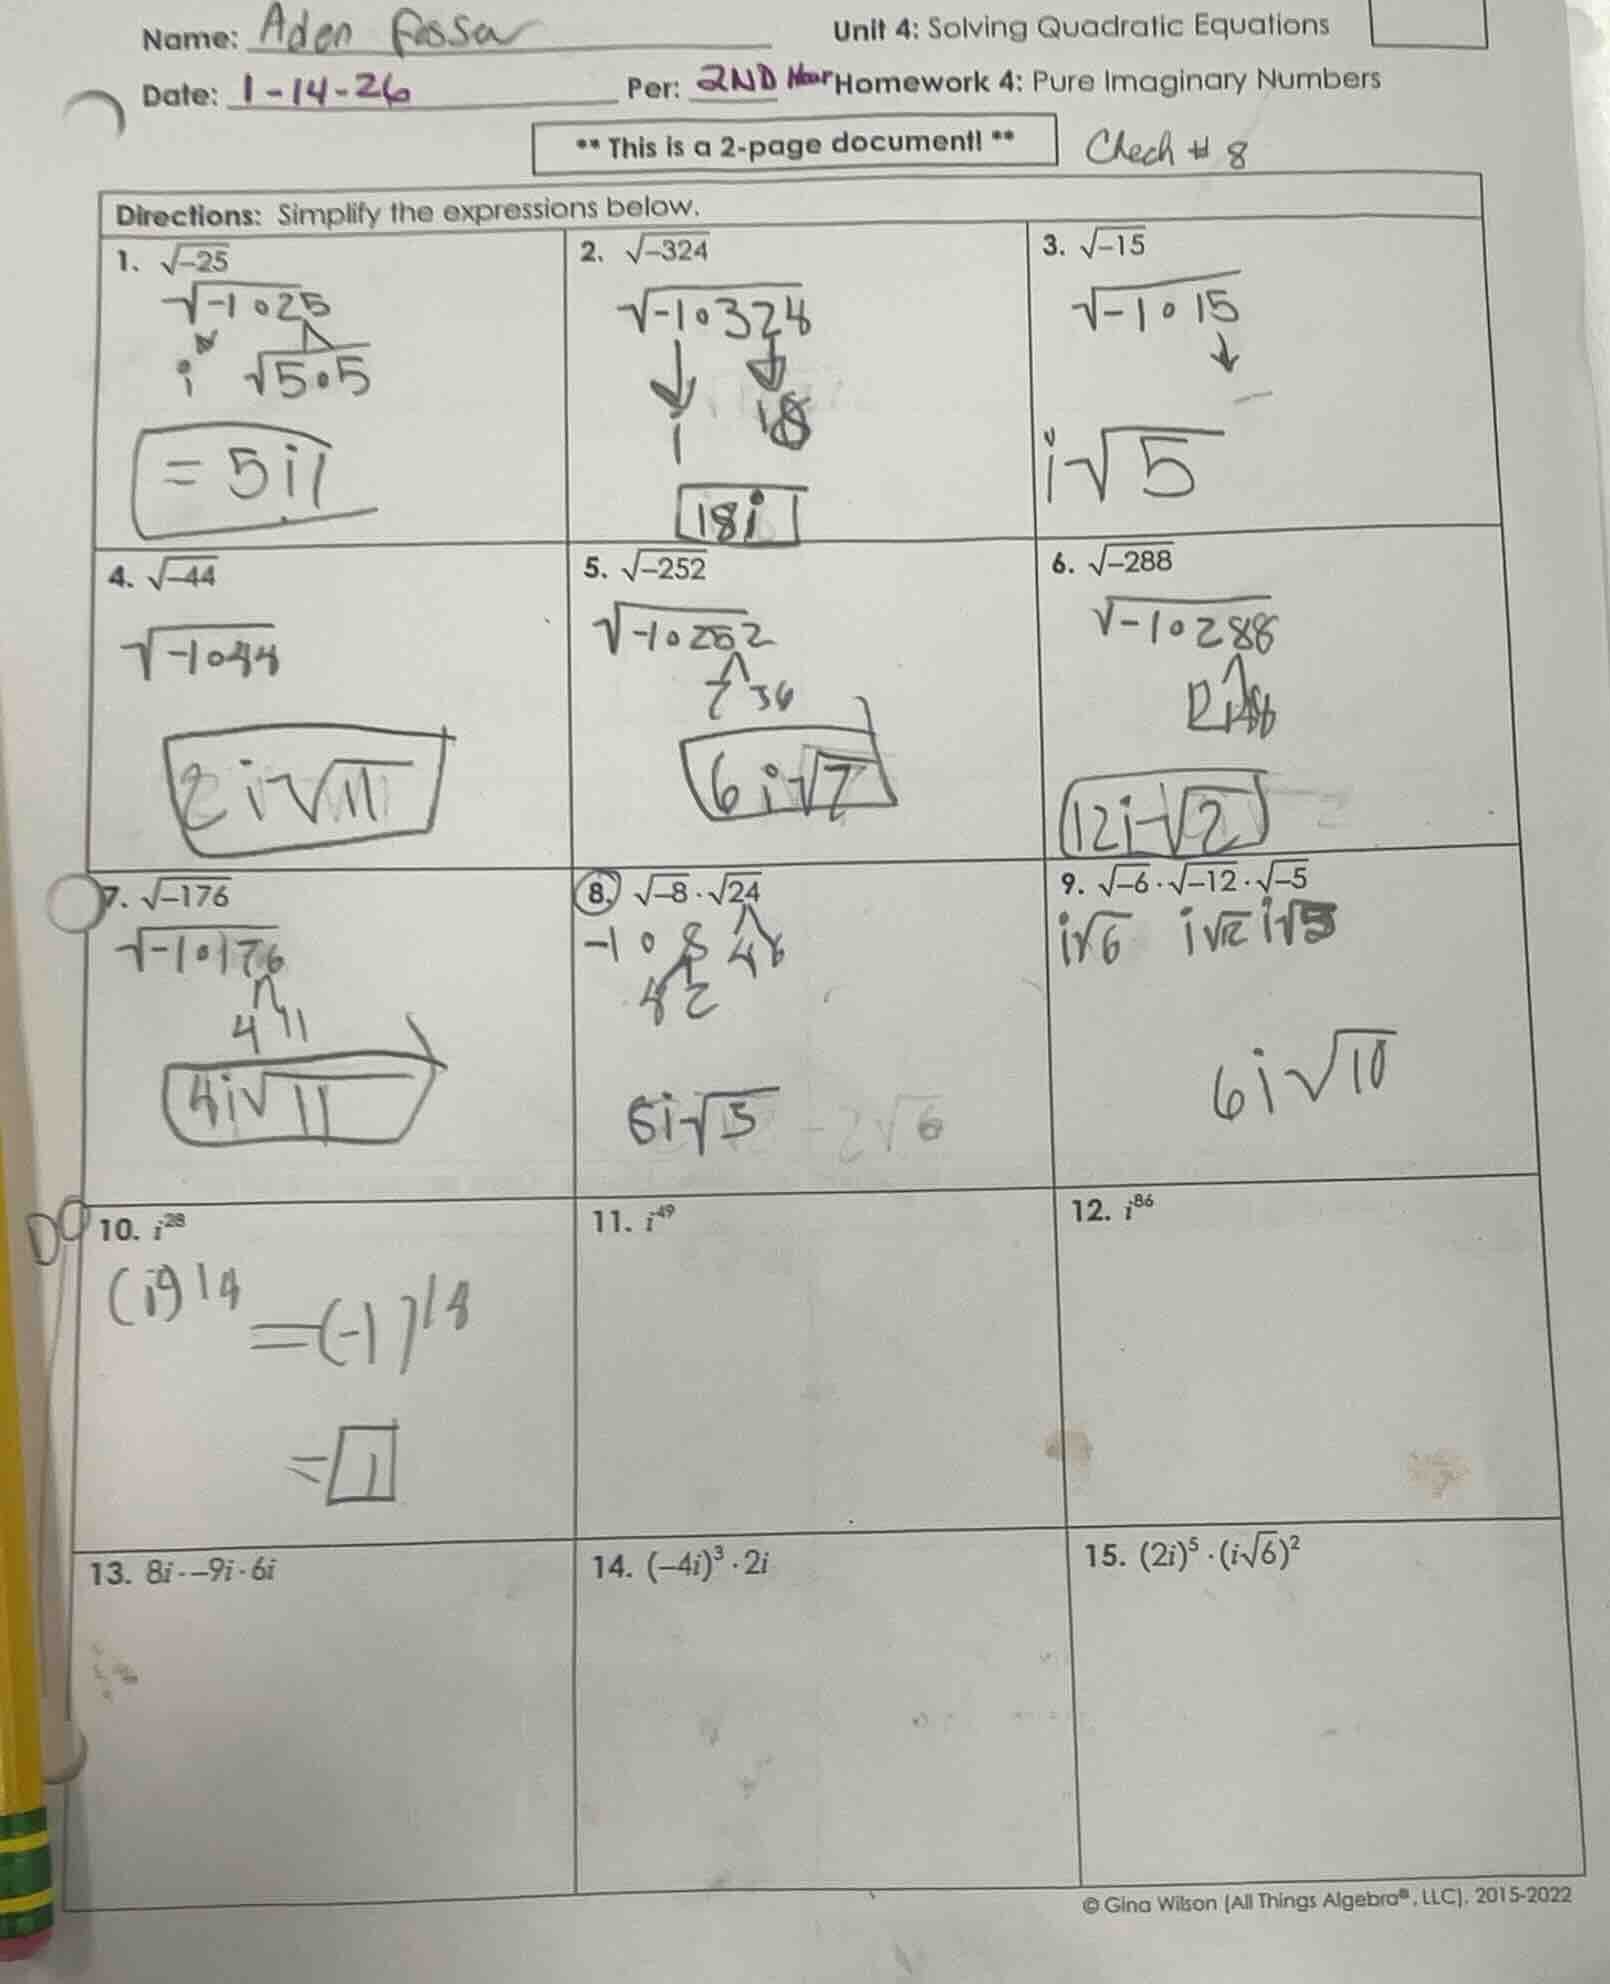 Name: Aden
Unit 4: Solving Quadratic Equations
Date: 1-14-26 Per: 2ND Hour Homework 4: Pure Imaginary Numbers
** This is a 2-page document! **
Chech # 8
Directions: Simplify the expressions below.
1. √-25
√-1∘25
i √5∘5
= 5i
2. √-324
√-1∘324
i 18
18i
3. √-15
√-1∘15
i√5
4. √-44
√-1∘44
2i√11
5. √-252
√-1∘252
7 36
6i√7
6. √-288
√-1∘288
12i√2
7. √-176
√-1∘176
4 11
4i√11
8. √-8 · √24
-1∘8 4 6
4 2
6i√3 -2√6
9. √-6 · √-12 · √-5
i√6 i√12 i√5
6i√10
10. i²⁸
= (-1)¹⁴
= 1
11. i⁴⁹
12. i⁸⁶
13. 8i · -9i · 6i
14. (-4i)³ · 2i
15. (2i)⁵ · (i√6)²
© Gina Wilson (All Things Algebra®, LLC), 2015-2022